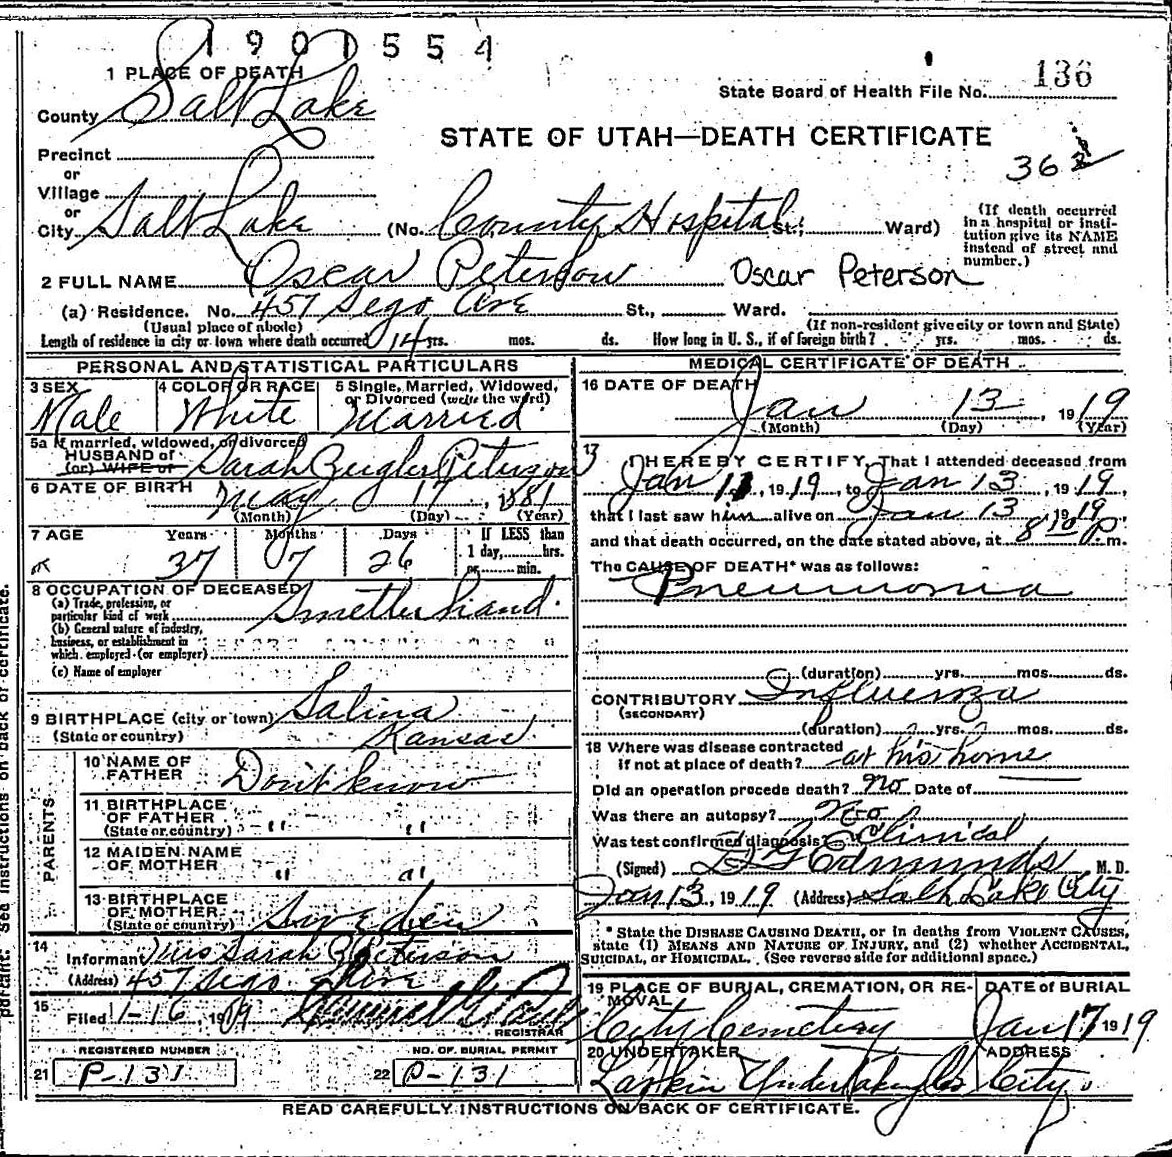 1901554
1 PLACE OF DEATH
136
State Board of Health File No.
County Salt Lake
STATE OF UTAH—DEATH CERTIFICATE
Precinct
or
362
Village
or
City Salt Lake (No. County Hospital St.; Ward)
(If death occurred in a hospital or institution give its NAME instead of street and number.)
2 FULL NAME Oscar Peterson Oscar Peterson
(a) Residence. No. 457 Sego Ave St., Ward.
(Usual place of abode) (If non-resident give city or town and State)
Length of residence in city or town where death occurred 14 yrs. mos. ds. How long in U. S., if of foreign birth? yrs. mos. ds.
PERSONAL AND STATISTICAL PARTICULARS
3 SEX 4 COLOR OR RACE 5 Single, Married, Widowed, or Divorced (write the word)
Male White Married
5a If married, widowed, or divorced
HUSBAND of
(or) WIFE of Sarah Zeigler Peterson
6 DATE OF BIRTH May 17, 1881
(Month) (Day) (Year)
7 AGE Years Months Days If LESS than
1 day, hrs.
37 7 26 or min.
8 OCCUPATION OF DECEASED
(a) Trade, profession, or
particular kind of work Smelter hand
(b) General nature of industry,
business, or establishment in
which employed (or employer)
(c) Name of employer
9 BIRTHPLACE (city or town) Salina
(State or country) Kansas
PARENTS
10 NAME OF
FATHER Don't know
11 BIRTHPLACE
OF FATHER
(State or country) " "
12 MAIDEN NAME
OF MOTHER " "
13 BIRTHPLACE
OF MOTHER
(State or country) Sweden
14
Informant Mrs Sarah Z Peterson
(Address) 457 Sego Ave
15
Filed 1-16, 1919
REGISTRAR
REGISTERED NUMBER NO. OF BURIAL PERMIT
21 P-131 22 P-131
MEDICAL CERTIFICATE OF DEATH
16 DATE OF DEATH
Jan 13, 1919
(Month) (Day) (Year)
17
I HEREBY CERTIFY, That I attended deceased from
Jan 11, 1919, to Jan 13, 1919,
that I last saw him alive on Jan 13 1919
and that death occurred, on the date stated above, at 8:10 P. m.
The CAUSE OF DEATH* was as follows:
Pneumonia
(duration) yrs. mos. ds.
CONTRIBUTORY Influenza
(SECONDARY)
(duration) yrs. mos. ds.
18 Where was disease contracted
if not at place of death? at his home
Did an operation procede death? No Date of
Was there an autopsy? No
Was test confirmed diagnosis? Clinical
(Signed) D G Edmunds M. D.
Jan 13, 1919 (Address) Salt Lake City
* State the DISEASE CAUSING DEATH, or in deaths from VIOLENT CAUSES,
state (1) MEANS AND NATURE OF INJURY, and (2) whether ACCIDENTAL,
SUICIDAL, or HOMICIDAL. (See reverse side for additional space.)
19 PLACE OF BURIAL, CREMATION, OR REMOVAL DATE of BURIAL
City Cemetery Jan 17 1919
20 UNDERTAKER ADDRESS
Larkin Undertaking Co City
READ CAREFULLY INSTRUCTIONS ON BACK OF CERTIFICATE.
portant. See instructions on back of certificate.